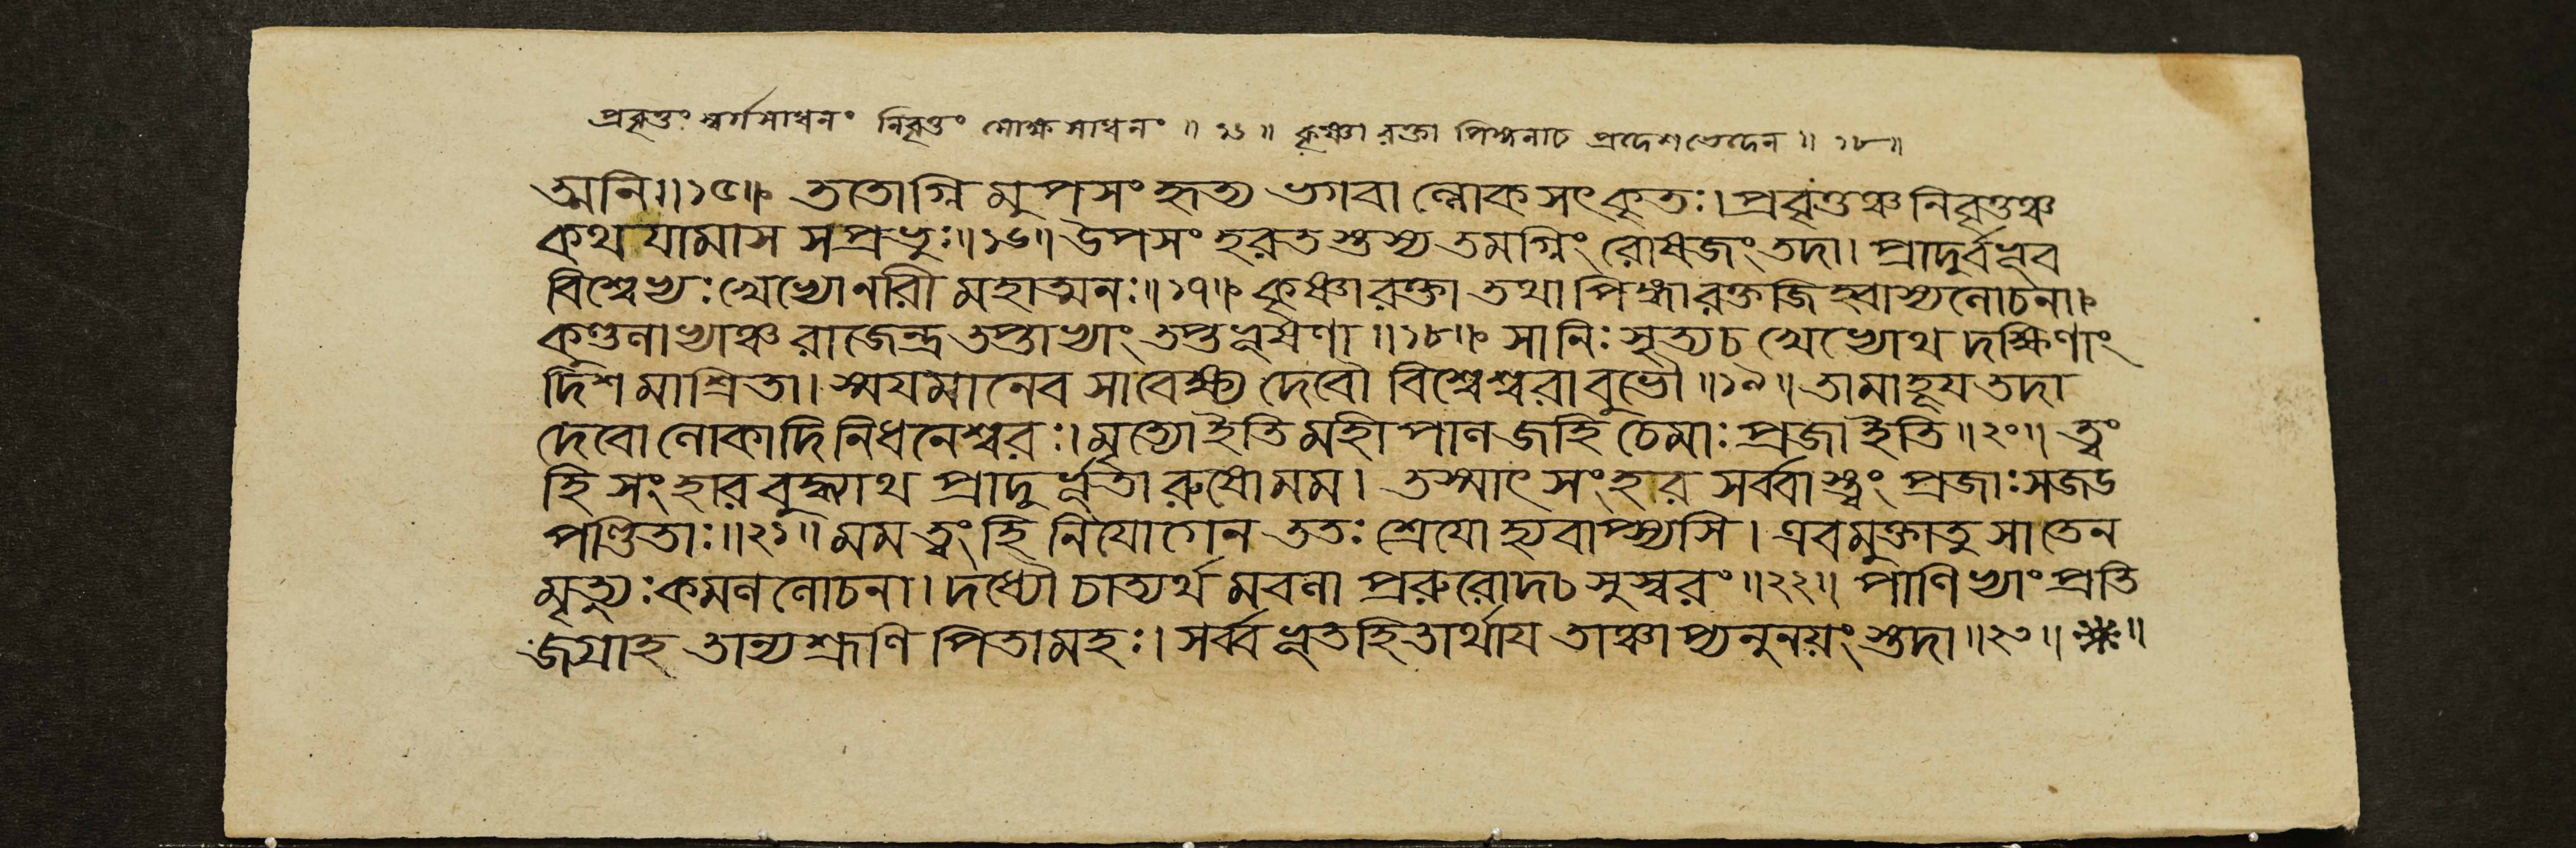 প্রবৃত্তং স্বর্গসাধনং নিবৃত্তং মোক্ষসাধনং ॥ ১৬ ॥ কৃষ্ণা রক্তা পিঙ্গলাচ প্রদেশভেদেন ॥ ১৮ ॥
ত্মনি॥১৫॥ ততোগ্নিমুপসংহৃত্য ভগবাল্লোকসৎকৃতঃ। প্রবৃত্তঞ্চ নিবৃত্তঞ্চ
কথযামাস সপ্রভুঃ॥১৬॥ উপসংহরতস্তস্য তমগ্নিং রোষজং তদা। প্রাদুর্বভূব
বিশ্বেভ্যঃ খেভ্যো নারী মহাত্মনঃ॥১৭॥ কৃষ্ণা রক্তা তথা পিঙ্গা রক্তজিহ্বাস্যলোচনা।
কুণ্ডলাভ্যাঞ্চ রাজেন্দ্র তপ্তাভ্যাং তপ্তভূষণা॥১৮॥ সা নিঃসৃত্যচ খেভ্যোথ দক্ষিণাং
দিশমাশ্রিতা। স্ময়মানেব সাবেক্ষ্য দেবৌ বিশ্বেশ্বরাবুভৌ॥১৯॥ তামাহূয তদা
দেবো লোকাদিনিধনেশ্বরঃ। মৃত্যো ইতি মহীপাল জহি চেমাঃ প্রজা ইতি॥২০॥ ত্বং
হি সংহারবুদ্ধ্যাথ প্রাদুর্ভূতা রুষো মম। তস্মাৎ সংহর সর্ব্বাস্ত্বং প্রজাঃ সজড
পণ্ডিতাঃ॥২১॥ মম ত্বং হি নিযোগেন ততঃ শ্রেযো হ্যবাপ্স্যসি। এবমুক্তা তু সা তেন
মৃত্যুঃ কমললোচনা। দধ্যৌ চাত্যর্থমবলা প্ররুরোদচ সুস্বরং॥২২॥ পাণিভ্যাং প্রতি
জগ্রাহ তান্যশ্রূণি পিতামহঃ। সর্ব্বভূতহিতার্থায তাঞ্চাপ্যনুনয়ংস্তদা॥২৩॥